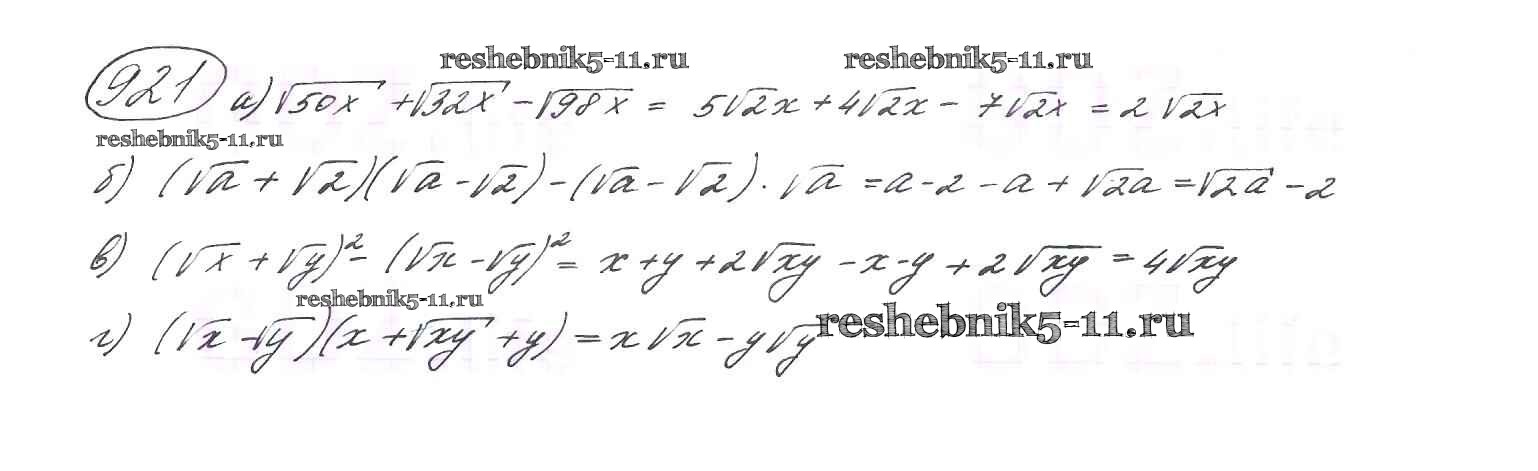 reshebnik5-11.ru reshebnik5-11.ru
921 а) √50x + √32x − √98x = 5√2x + 4√2x − 7√2x = 2√2x
reshebnik5-11.ru
б) (√a + √2)(√a − √2) − (√a − √2) · √a = a − 2 − a + √2a = √2a − 2
в) (√x + √y)² − (√x − √y)² = x + y + 2√xy − x − y + 2√xy = 4√xy
reshebnik5-11.ru
г) (√x − √y)(x + √xy + y) = x√x − y√y
reshebnik5-11.ru